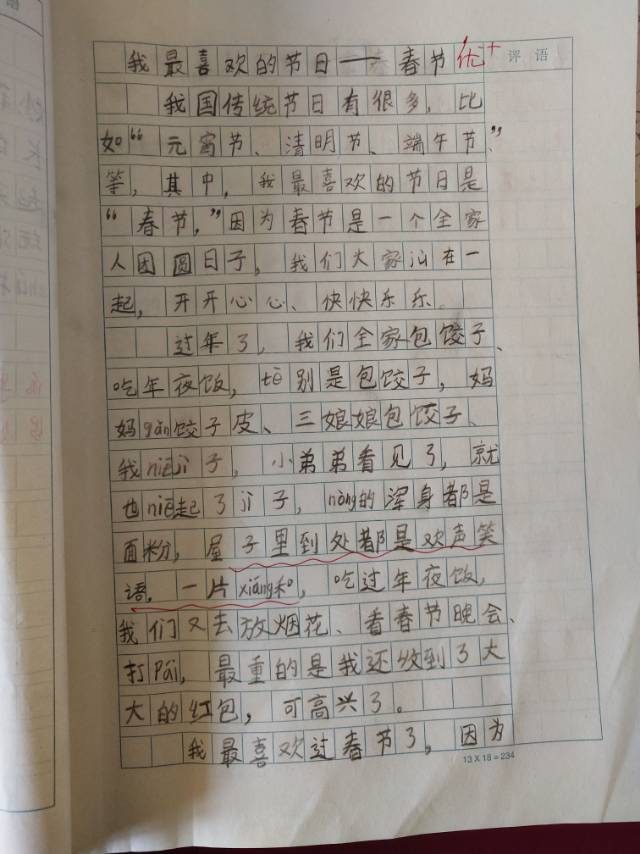 我最喜欢的节日——春节 优+ 评语
我国传统节日有很多，比
如“元宵节、清明节、端午节”
等，其中，我最喜欢的节日是
“春节，”因为春节是一个全家
人团圆日子，我们大家jù在一
起，开开心心、快快乐乐。
过年了，我们全家包饺子、
吃年夜饭，tè别是包饺子，妈
妈gǎn饺子皮、三娘娘包饺子、
我niējì子，小弟弟看见了，就
也niē起了jì子，nòng的浑身都是
面粉，屋子里到处都是欢声笑
语，一片xiáng和，吃过年夜饭，
我们又去放烟花、看春节晚会、
打Pái，最重的是我还收到了大
大的红包，可高兴了。
我最喜欢过春节了，因为
13×18=234